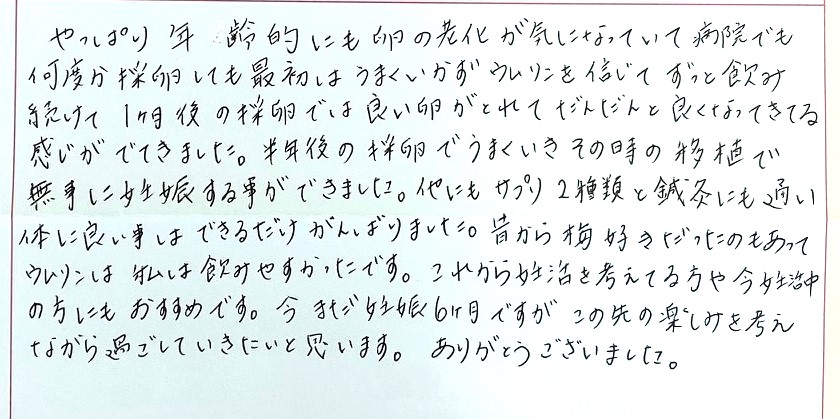 やっぱり年齢的にも卵の老化が気になっていて病院でも
何度か採卵しても最初はうまくいかず ウムリンを信じてずっと飲み
続けて 1ヶ月後の採卵では良い卵がとれてだんだんと良くなってきてる
感じがでてきました。半年後の採卵でうまくいきその時の移植で
無事に妊娠する事ができました。他にもサプリ2種類と鍼灸にも通い
体に良い事はできるだけがんばりました。昔から梅好きだったのもあって
ウムリンは私は飲みやすかったです。これから妊活を考えてる方や今妊活中
の方にもおすすめです。今まだ妊娠6ヶ月ですがこの先の楽しみを考え
ながら過ごしていきたいと思います。 ありがとうございました。